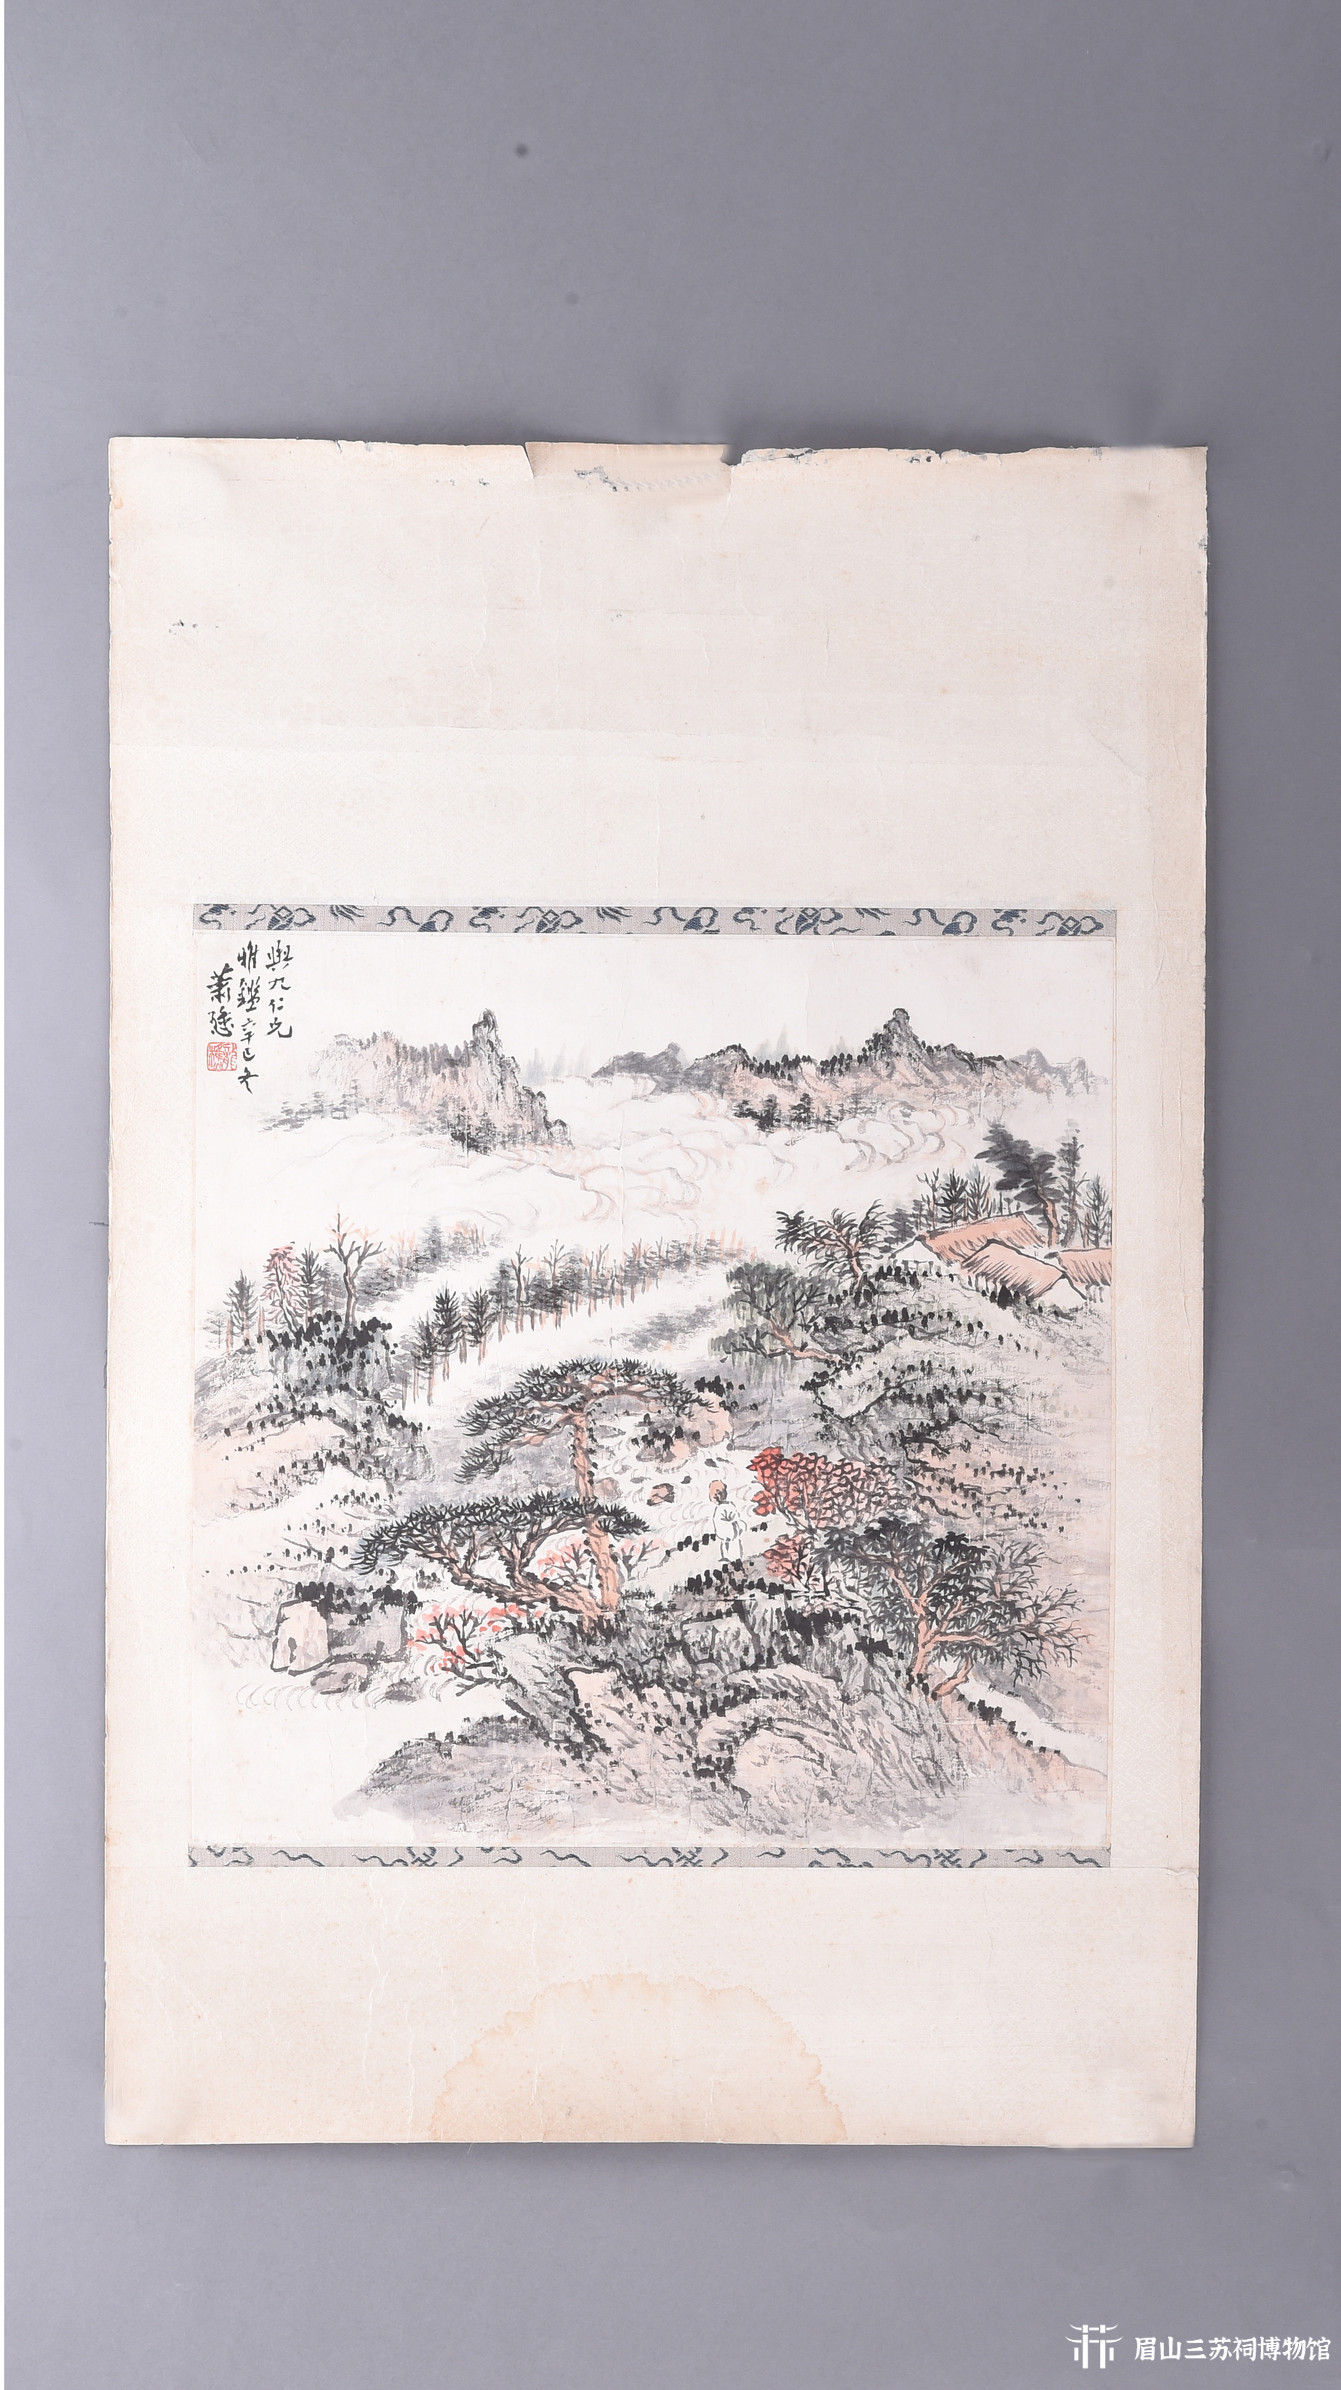 與九仁兄
雅鑑辛巳冬
蕭愻
眉山三苏祠博物馆